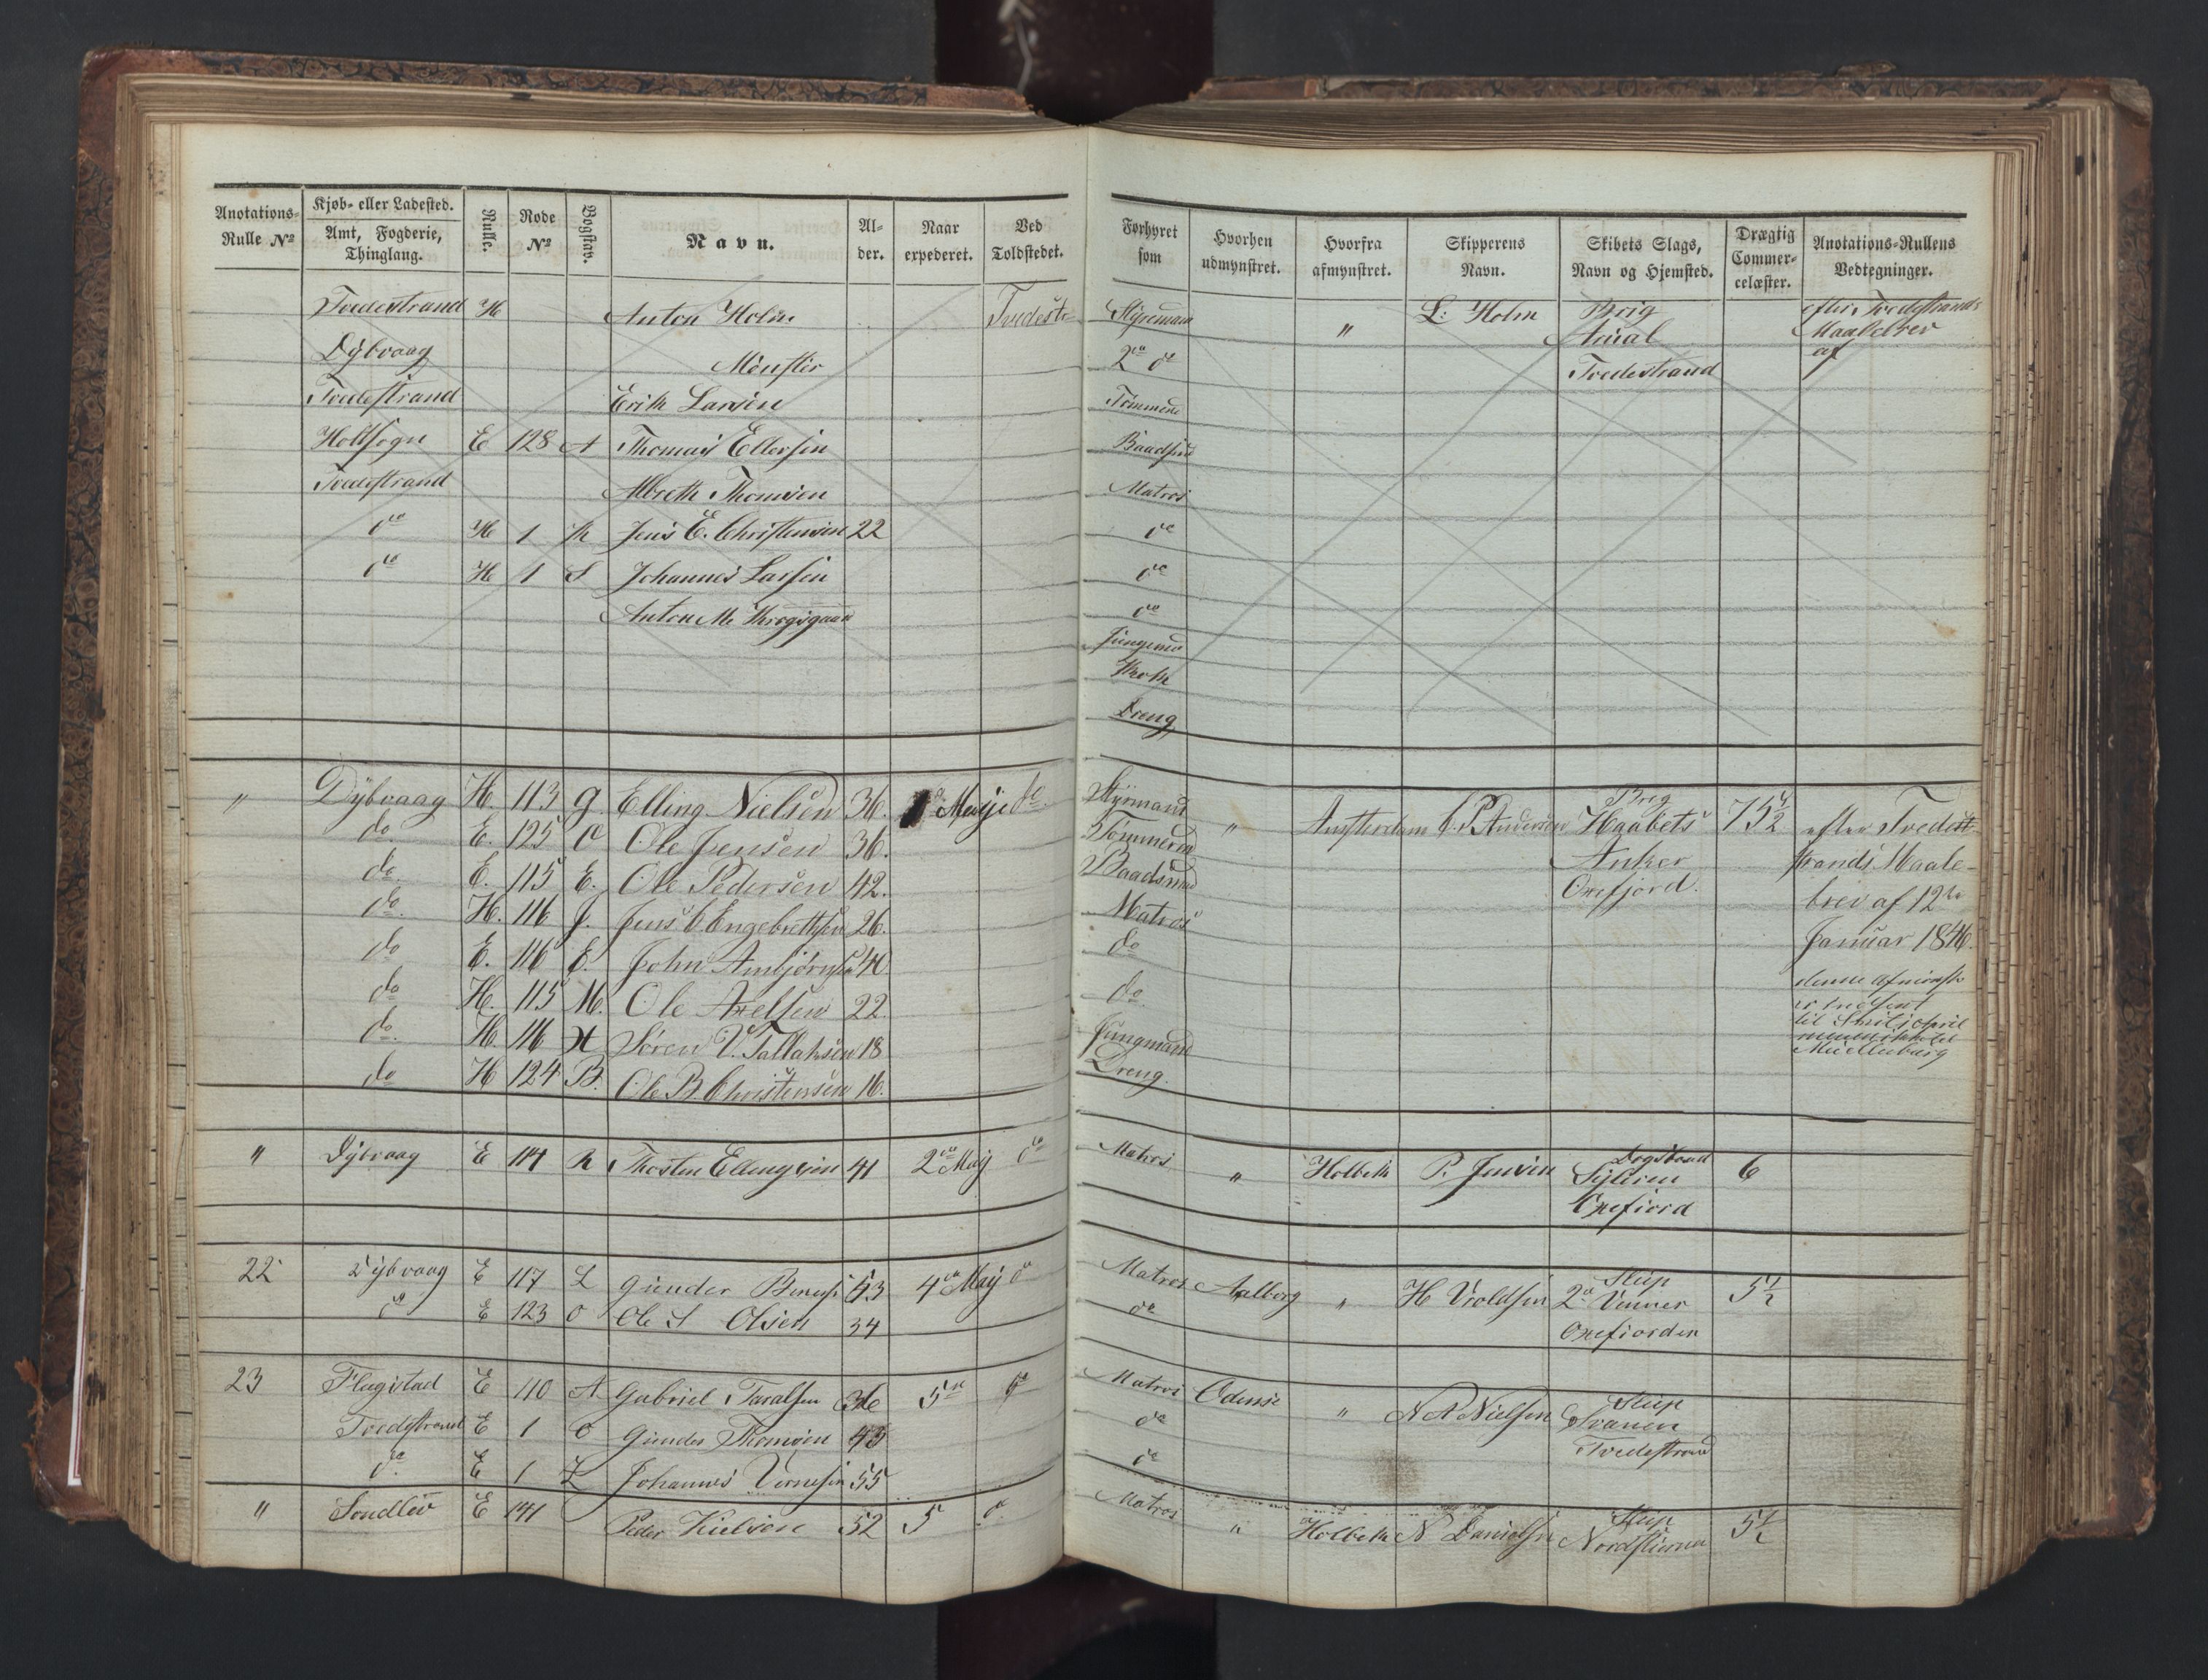 Anotations-Rulle No | Kjøb- eller Ladested. Amt, Fogderie, Thinglang. | Rulle. | Rode No | Bogstav. | Navn. | Alder. | Naar expederet. | Ved Toldstedet. | Forhyret som | Hvorhen udmynstret. | Hvorfra afmynstret. | Skipperens Navn. | Skibets Slags, Navn og Hjemsted. | Drægtig Commercelæster. | Anotations-Rullens Vedtegninger.
Tvedestrand H Anton Holm Tvedestr Styrmand " L. Holm Brig efter Tvedestrands
Dybvaag 2de do Maalebrev
Tvedestrand af
Tvedestrand Erik Larsen Tømmend
Holtsogn E 128 A Thomas Ellersen Baadsmd
Tvedestrand Thomsen Matros
do H 1 K Jens E. Christensen 22 do
do H 1 S Johannes Larsen do
Anton M do
Jungmd
Kok
Dreng
" Dybvaag H. 113 G. Elling Nielsen 36. Maji do. Styrmand " Amsterdam C. P. Andersen Brig 75½ efter Tvedest-
do. E. 125 O Ole Jensen 36. Tømmermd Haabets trands Maale-
do. E. 115 E. Ole Pedersen 42. Baadsmd Anker brev af 12te
do. H. 116 J. Jens C Engebrethsen 26. Matros Oxefjord. Januar 1846.
do E. 116 E. John Ambjørnsen 40 do
do H. 115 M. Ole Axelsen 22. do.
do. H. 116 H Søren V. Tallaksen 18 Jungmand
do H 124 B. Ole B Christensen 16. Dreng.
" Dybvaag E 114 K Thosten Ellingsen 41 2den Maij do Matros " Holbek P. Jensen 6
Oxefiord
22 Dybvaag E 117 L Gunder 43 4de Maij do Matros Aalborg " H Vroldsen Slup 5½
do E 123 O Ole S Olsen 34 do 2de Venner
Oxefiorden
23 Flagstad E 110 A Gabriel Taralsen 36 5te do Matros Odense " N A Nielsen Slup
Tvedestrand E 1 O Gunder Thomsen 43 do Svanen
do. E 1 L Johannes 55 do Tvedestrand
" Søndlev E 141 Peder Nielsen 52 5 do. Matros " Holbek N Danielsen Slup 5½
Nordstierna